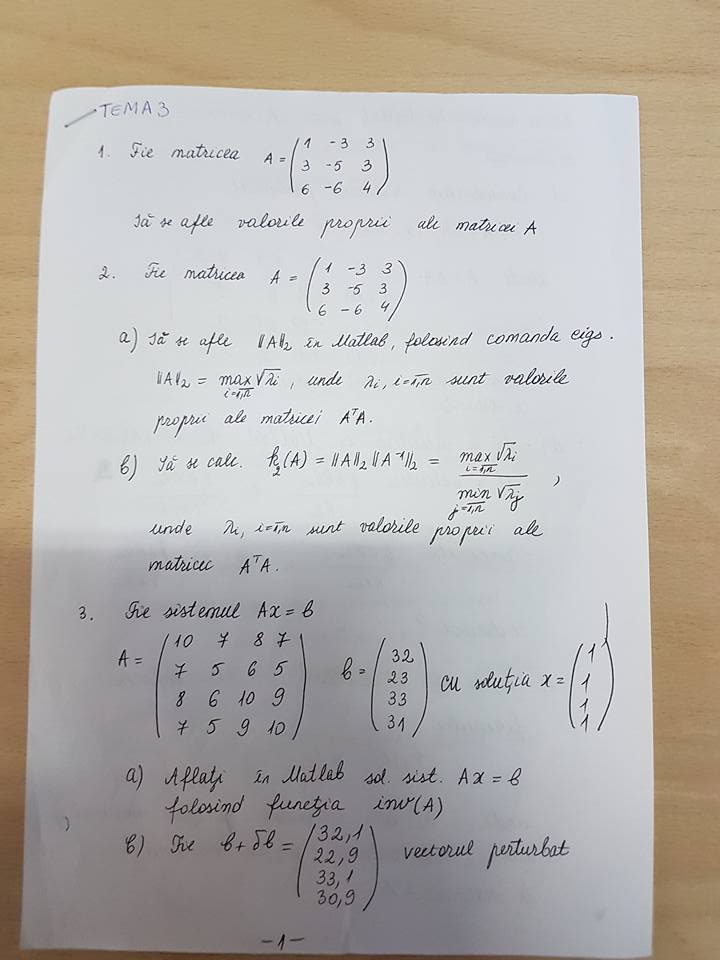 TEMA 3
1. Fie matricea A = ( 1 -3 3
3 -5 3
6 -6 4 )
Să se afle valorile proprii ale matricei A
2. Fie matricea A = ( 1 -3 3
3 -5 3
6 -6 4 )
a) Să se afle ||A||₂ în Matlab, folosind comanda eigs.
||A||₂ = max √λi, unde λi, i=1,n sunt valorile
i=1,n
proprii ale matricei AᵀA.
b) Să se calc. k₂(A) = ||A||₂ ||A⁻¹||₂ = max √λi
i=1,n
min √λj ,
j=1,n
unde λi, i=1,n sunt valorile proprii ale
matricec AᵀA.
3. Fie sistemul Ax = b
A = ( 10 7 8 7
7 5 6 5
8 6 10 9
7 5 9 10 )
b = ( 32
23
33
31 )
cu soluția x = ( 1
1
1
1 )
a) Aflați în Matlab sol. sist. Ax = b
folosind funcția inv(A)
b) Fie b + δb = ( 32,1
22,9
33,1
30,9 )
vectorul perturbat
-1-